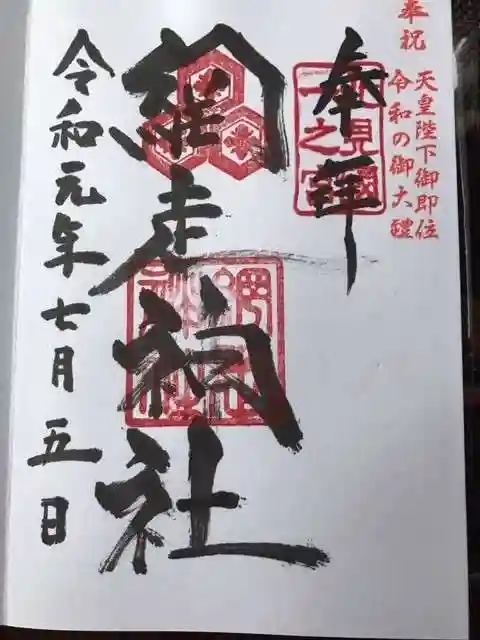 奉祝
天皇陛下御即位
令和の御大禮
奉拝
北見國
一之宮
網走神社
網走
神社
令和元年七月五日